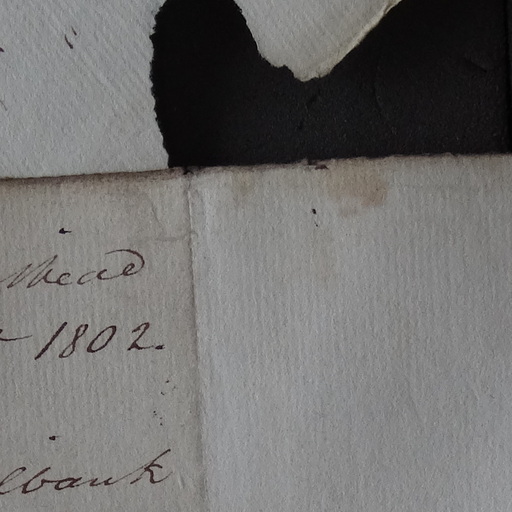 head
1802.
lbank